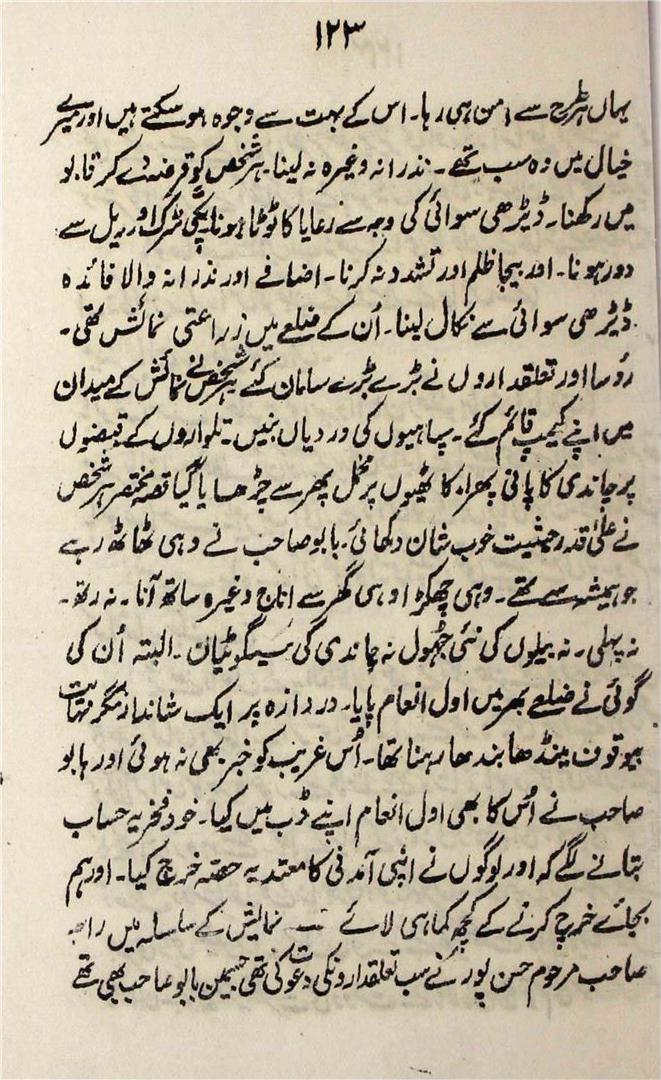 ۱۲۳
یہاں ہر طرح سے امن ہی رہا۔ اس کے بہت سے وجوہ ہو سکتے ہیں اور میرے
خیال میں وہ سب تھے۔ نذرانہ وغیرہ نہ لینا۔ ہر شخص کو قرضہ دے کر قابو
میں رکھنا۔ ڈیڑھی سوائی کی وجہ سے رعایا کا ٹوٹا ہونا۔ پکی سڑک اور ریل سے
دور ہونا۔ اور بیجا ظلم اور تشدد نہ کرنا۔ اضافے اور نذرانہ والا فائدہ
ڈیڑھی سوائی سے نکال لینا۔ اُن کے ضلعے میں زراعتی نمائش تھی۔
رؤسا اور تعلقداروں نے بڑے بڑے سامان کئے ہر شخص نے نمائش کے میدان
میں اپنے کیمپ قائم کئے۔ سپاہیوں کی وردیاں بنیں۔ تلواروں کے قبضوں
پر چاندی کا پانی پھرا۔ کاٹھیوں پر مخمل پھر سے چڑھایا گیا قصہ مختصر ہر شخص
نے علیٰ قدر حیثیت خوب شان دکھائی۔ بابو صاحب نے وہی ٹھاٹھ رہے
جو ہمیشہ سے تھے۔ وہی چھکڑہ اوہی گھر سے اناج وغیرہ ساتھ آنا۔ نہ رتھ۔
نہ بہلی۔ نہ بیلوں کی نئی جھول نہ چاندی کی سینگوٹیان۔ البتہ اُن کی
گوئی نے ضلعے بھر میں اول انعام پایا۔ دروازہ پر ایک شاندار مگر نہایت
بیوقوف مینڈھا بندھا رہتا تھا۔ اُس غریب کو خبر بھی نہ ہوئی اور بابو
صاحب نے اُس کا بھی اول انعام اپنے ڈب میں کیا۔ خود فخریہ حساب
بتانے لگے کہ اور لوگوں نے اپنی آمدنی کا معتدبہ حصہ خرچ کیا۔ اور ہم
بجائے خرچ کرنے کے کچھ کما ہی لائے ۔ نمایش کے سلسلہ میں راجہ
صاحب مرحوم حسن پور نے سب تعلقدارونکی دعوت کی تھی جسمیں بابو صاحب بھی تھے